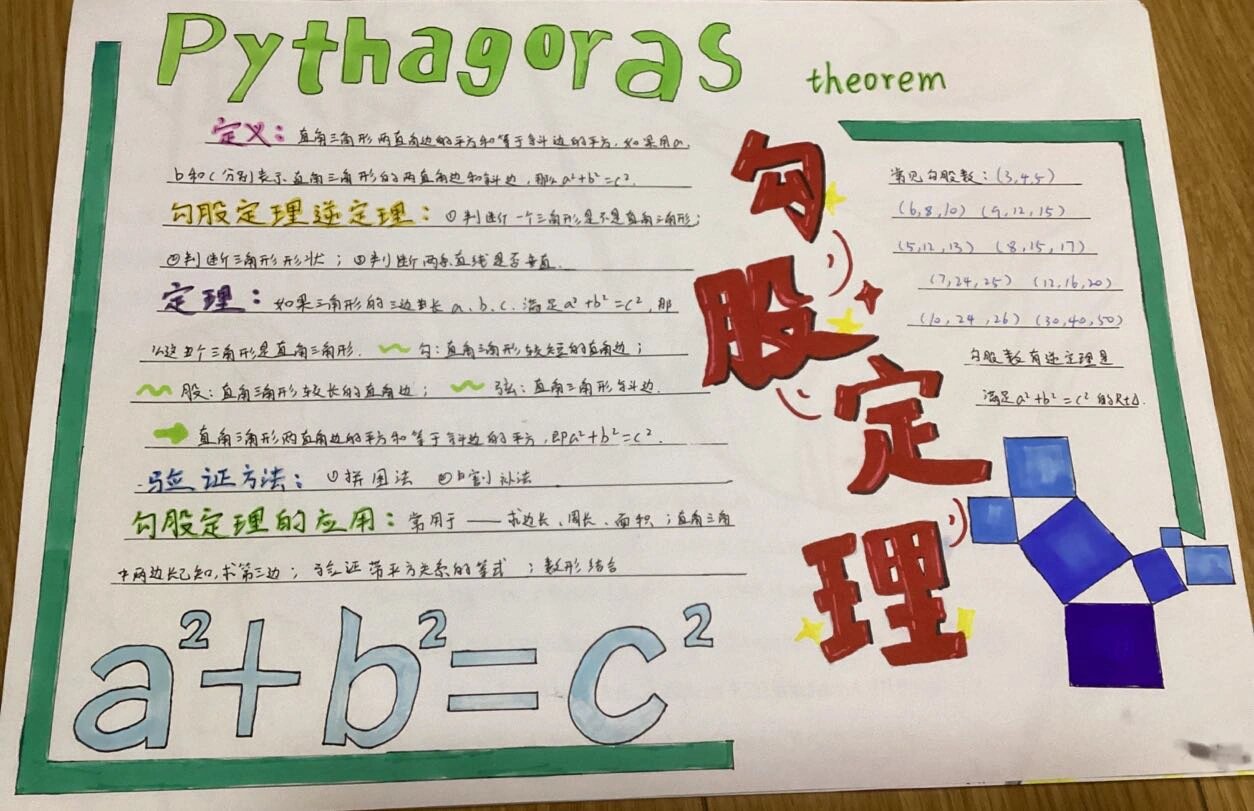 Pythagoras theorem
定义：直角三角形两直角边的平方和等于斜边的平方，如果用a,
b和c分别表示直角三角形的两直角边和斜边，那么a²+b²=c².
勾股定理逆定理：①判断一个三角形是不是直角三角形；
②判断三角形形状；③判断两条直线是否垂直.
定理：如果三角形的三边长a、b、c.满足a²+b²=c²，那
么这个三角形是直角三角形. 勾：直角三角形较短的直角边；
股：直角三角形较长的直角边； 弦：直角三角形斜边.
直角三角形两直角边的平方和等于斜边的平方，即a²+b²=c².
验证方法：①拼图法 ②割补法
勾股定理的应用：常用于——求边长、周长、面积；直角三角
两边长已知，求第三边；验证带平方关系的等式；数形结合
a²+b²=c²
勾股定理
常见勾股数：(3,4,5)
(6,8,10) (9,12,15)
(5,12,13) (8,15,17)
(7,24,25) (12,16,20)
(10,24,26) (30,40,50)
勾股数有逆定理是
满足a²+b²=c²的Rt△.